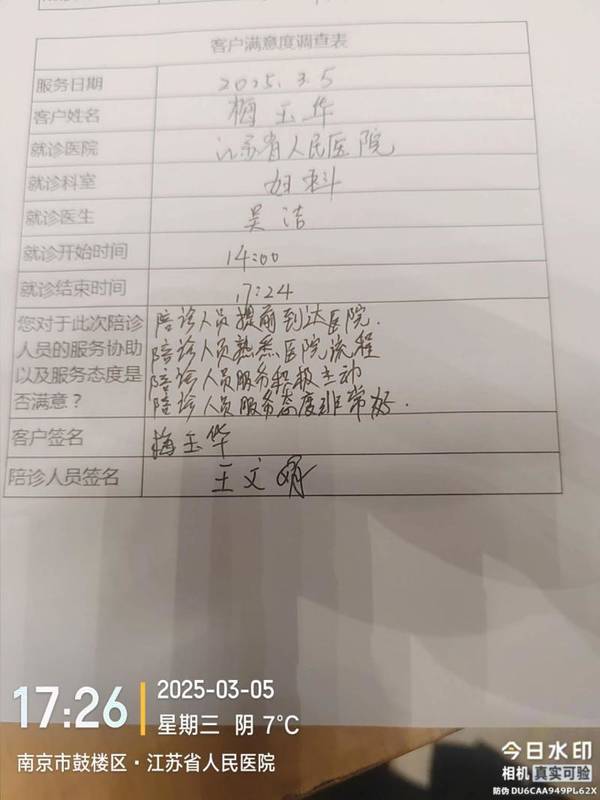 客户满意度调查表
服务日期 2025.3.5
客户姓名 梅玉华
就诊医院 江苏省人民医院
就诊科室 妇科
就诊医生 吴洁
就诊开始时间 14:00
就诊结束时间 17:24
您对于此次陪诊 陪诊人员提前到达医院.
人员的服务协助 陪诊人员熟悉医院流程
以及服务态度是 陪诊人员服务积极主动
否满意？ 陪诊人员服务态度非常好.
客户签名 梅玉华
陪诊人员签名 王文
17:26
2025-03-05
星期三 阴 7°C
南京市鼓楼区·江苏省人民医院
今日水印
相机 真实可验
防伪 DU6CAA949PL62X